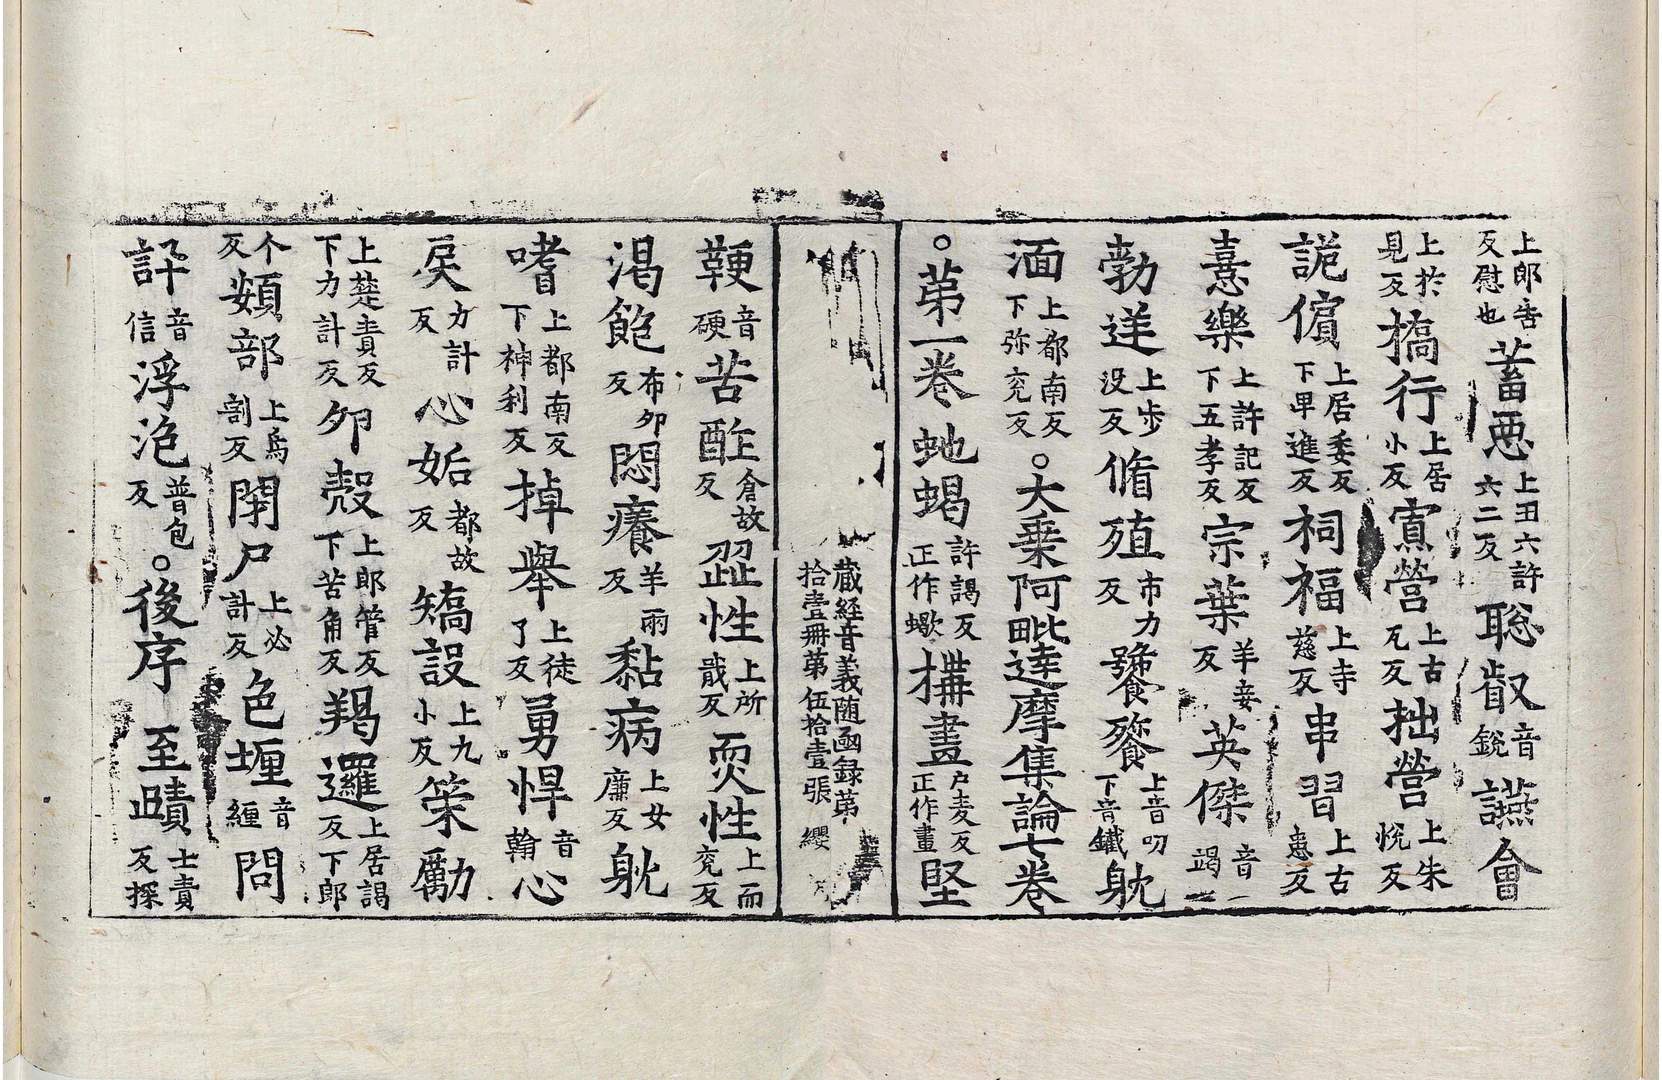 上郎告反慰也蓄恶上丑六許六二反聡叡音銳讌會
上於見反撟行上居小反寊營上古瓦反拙營上朱恱反
詭儐上居委反下早進反祠福上寺慈反串習上古患反
憙樂上許記反下五孝反宗葉羊妾反英傑音竭
勃逆上步没反脩殖市力反饕餮上音叨下音鐵躭
湎上都南反下弥兖反○大乗阿毗達摩集論七卷
○苐一卷虵蝎許謁反正作蠍搆畫戸麦反正作畫堅
蔵經音義随凾録苐
拾壹冊苐伍拾壹張 纓
鞕音硬苦酢倉故反澁性上所戢反耎性上而兖反
渇飽布夘反悶癢羊兩反黏病上女廉反躭
嗜上都南反下神利反掉舉上徒了反勇悍音翰心
戾力計反心妬都故反矯設上九小反策勵
上楚責反下力計反夘㱿上郎管反下苦角反羯邏上居謁反下郎
个反頞部上烏割反閇尸上必計反色㙻音纏問
訐音信浮泡普包反○後序 至賾士責反探